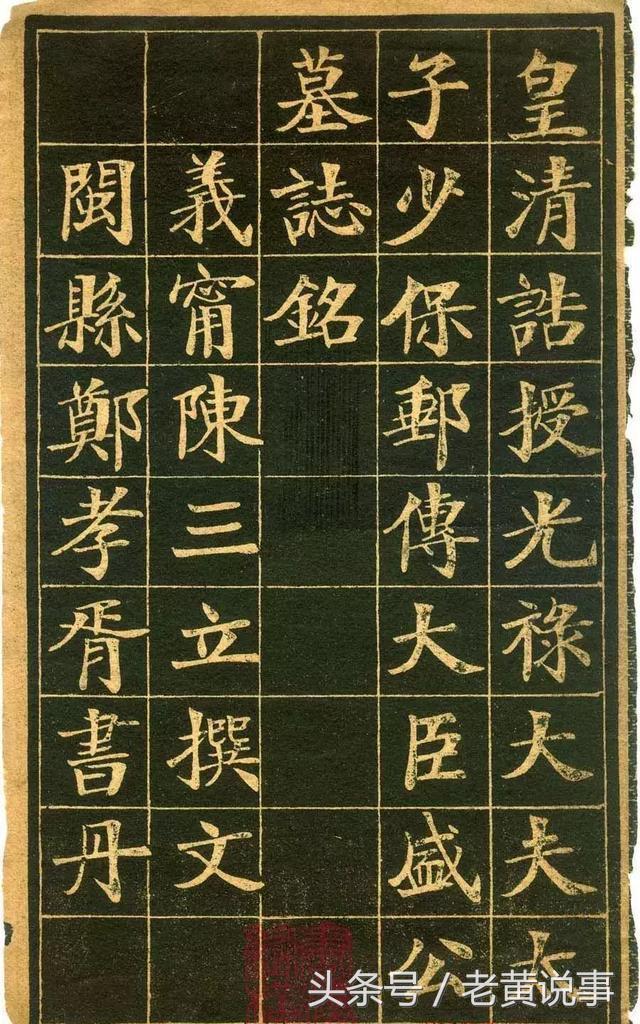 皇清誥授光祿大夫太
子少保郵傳大臣盛公
墓誌銘
義甯陳三立撰文
閩縣鄭孝胥書丹
头条号/老黄说事